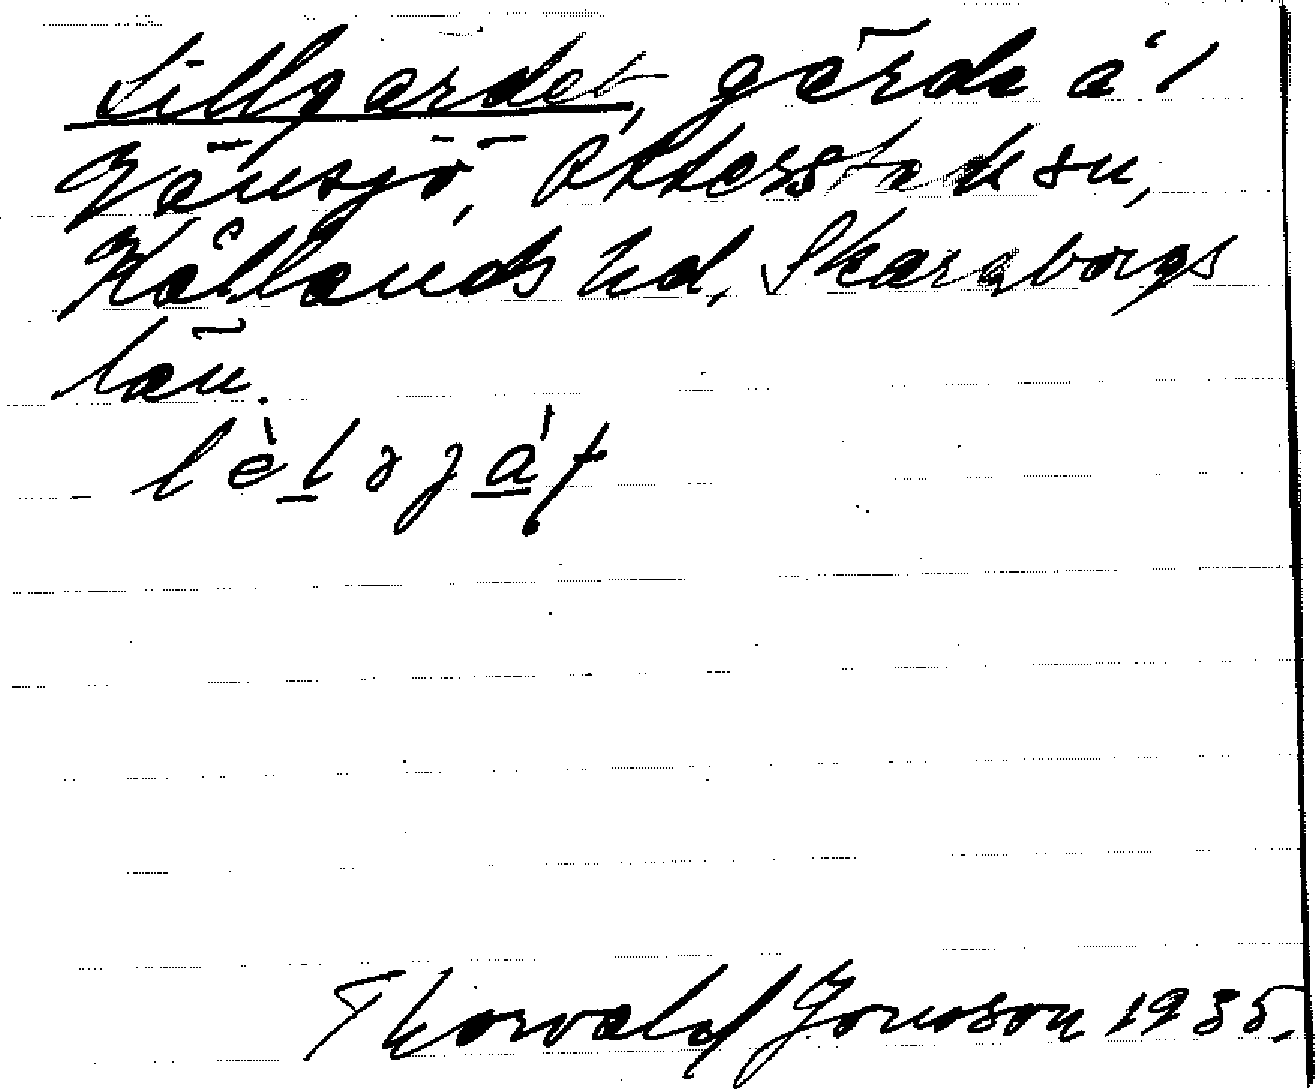 Lillgärdet, gärde å 1
Gänsjö, Otterstads sn,
Kållands hd, Skaraborgs
län.
Thorvald Jonsson 1935.